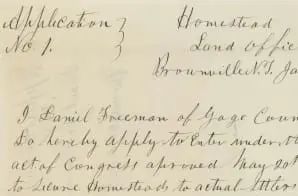 Application
No 1.
Homestead
Land Offic
Brownville N.T. Ja
I Daniel Freeman of Gage Coun
Do hereby apply to Enter under th
act of Congress aproved May 20th
to Secure Homesteads to actual settlers